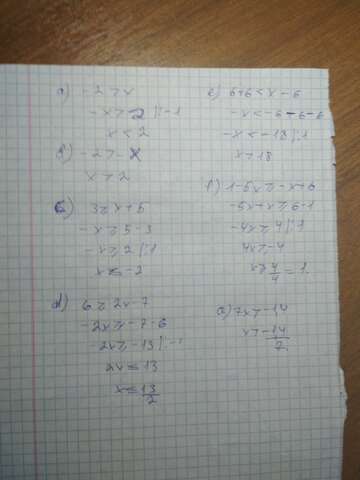 a) -2 > x
-x > 2 |:-1
x < 2
b) -2 > -x
x > 2
c) 3 ≥ x+5
-x ≥ 5-3
-x ≥ 2 |:1
x ≤ -2
d) 6 ≥ 2x-7
-2x ≥ -7-6
-2x ≥ -13 |:-1
2x ≤ 13
x ≤ 13/2
e) 6+6 < x-6
-x < -6-6-6
-x < -18 |:1
x > 18
f) 1-5x ≥ -x+6
-5x+x ≥ 6-1
-4x ≥ 4 |:1
4x ≥ -4
x ≥ 4/4 = 1
a) 7x > -14
x > -14/7